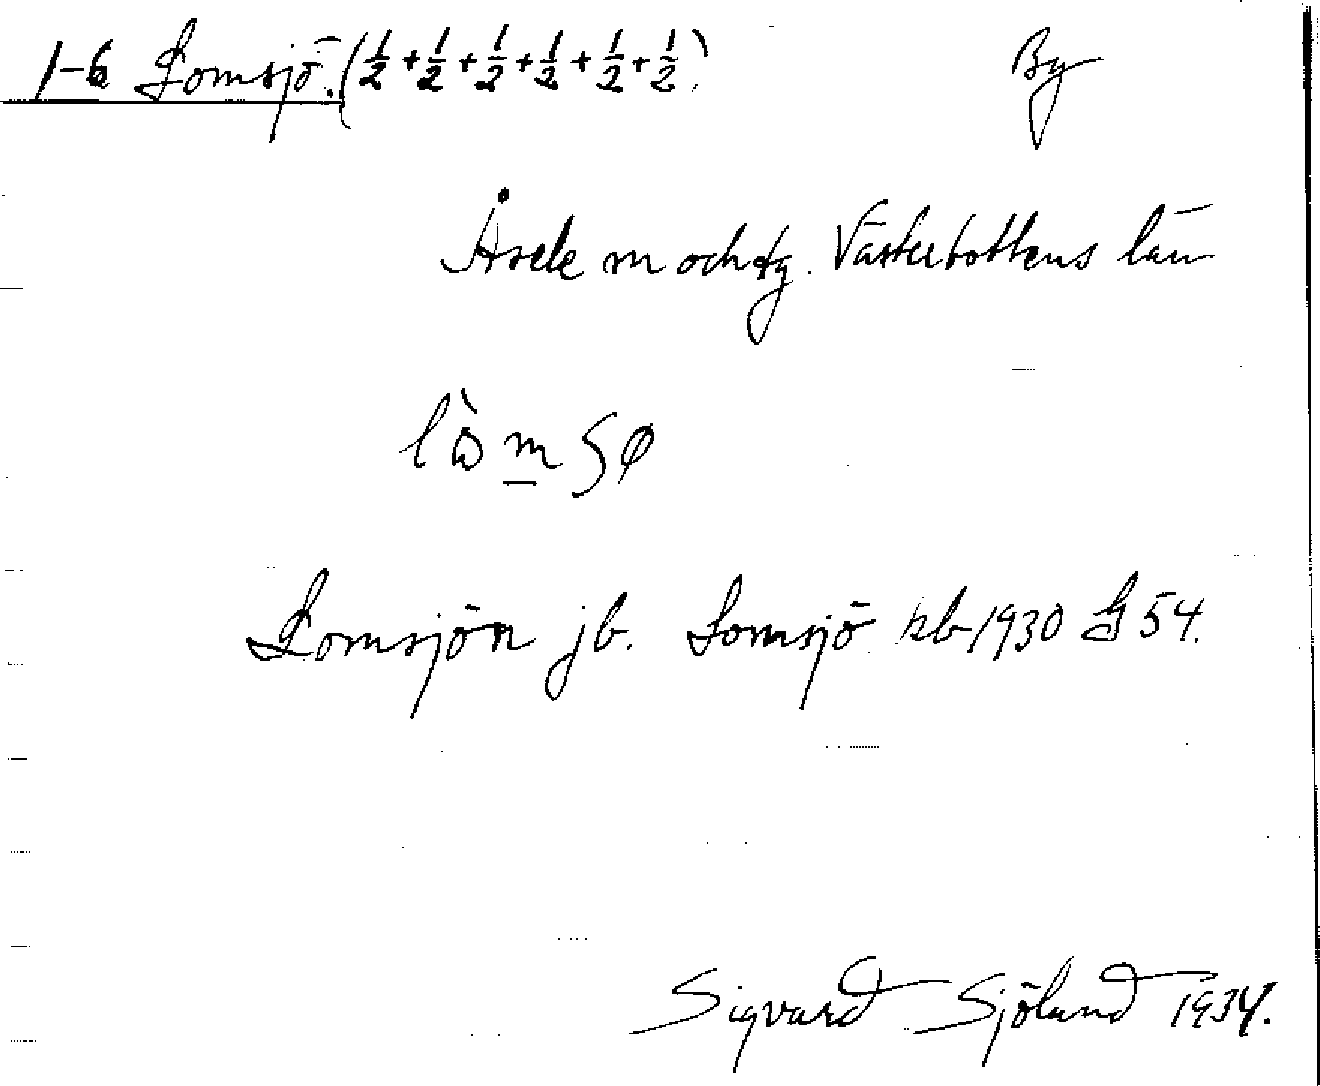 1-6 Lomsjö. (½ + ½ + ½ + ½ + ½ + ½) By
Åsele m och tg. Västerbottens län
Lomsjön jb. Lomsjö kb 1930 G 54.
Sigvard Sjölund 1934.